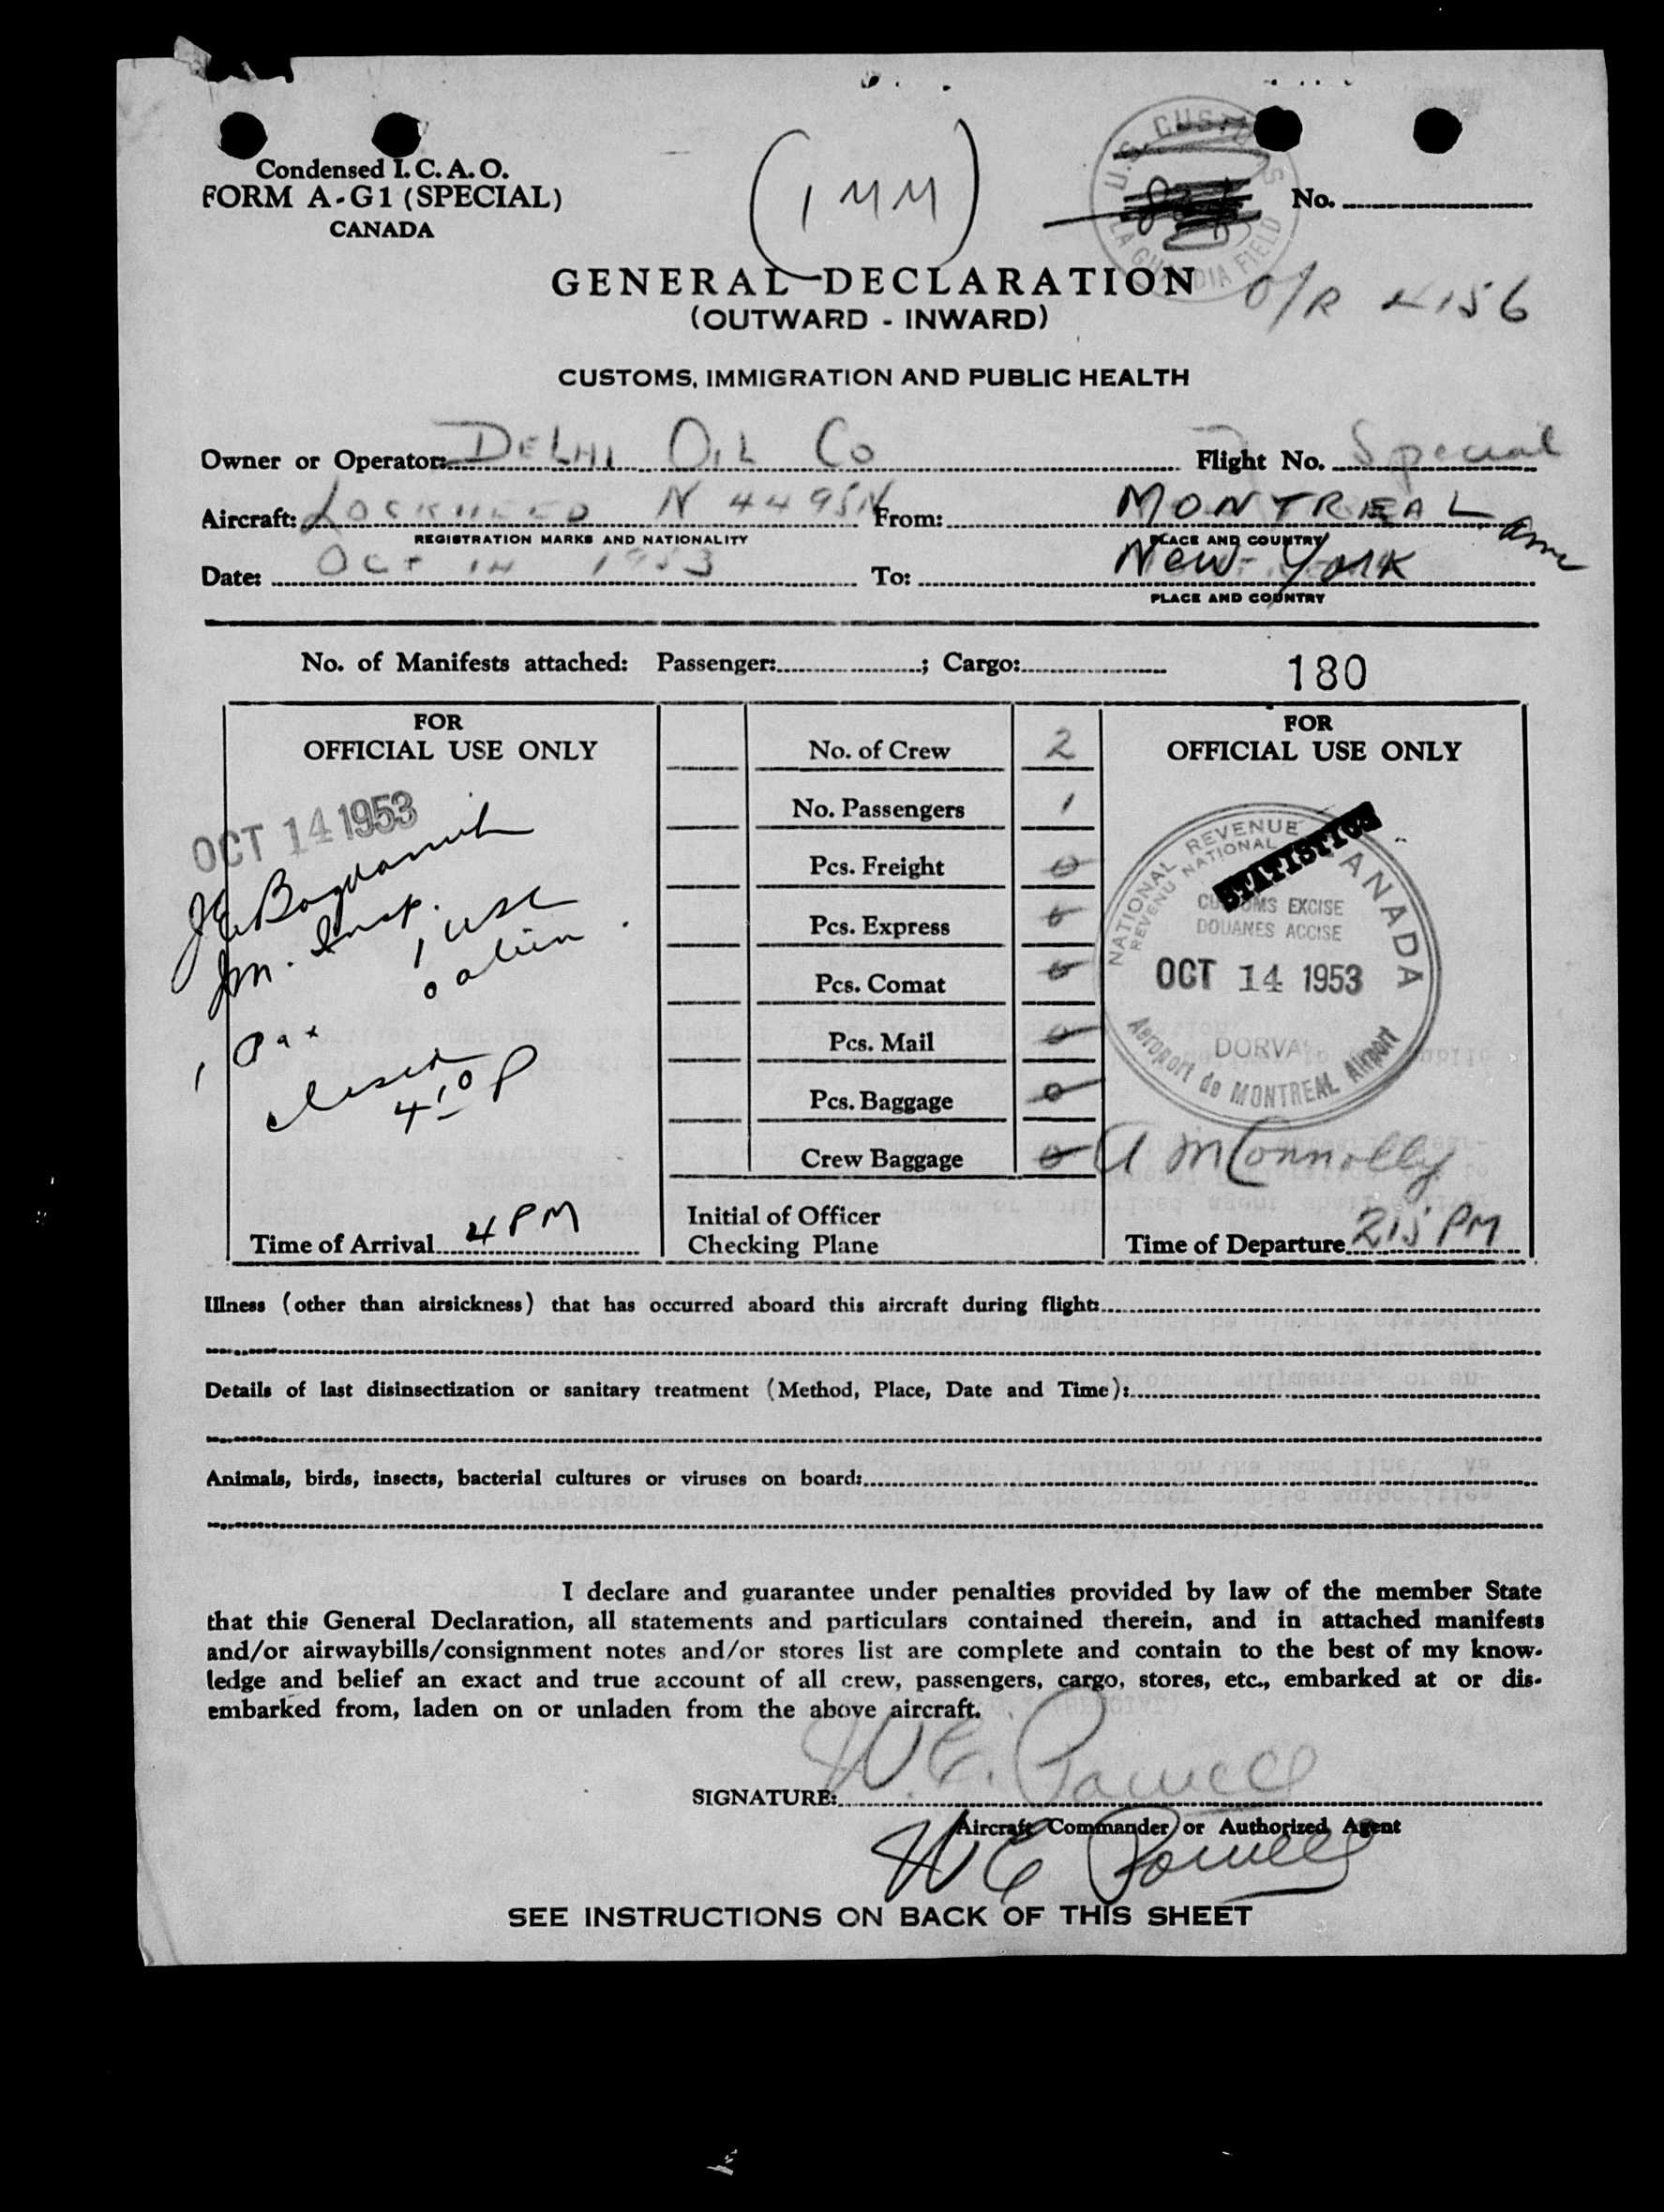 Condensed I. C. A. O.
FORM A-G1 (SPECIAL)
CANADA
U.S. CUSTOMS
LA GUARDIA FIELD
No.
GENERAL DECLARATION
O/R 4156
(OUTWARD - INWARD)
CUSTOMS, IMMIGRATION AND PUBLIC HEALTH
Owner or Operator: DELHI OIL CO Flight No. Special
Aircraft: LOCKHEED N 4495N From: MONTREAL
REGISTRATION MARKS AND NATIONALITY PLACE AND COUNTRY
Date: OCT 14 1953 To: New York
PLACE AND COUNTRY
No. of Manifests attached: Passenger: ; Cargo:
180
FOR
OFFICIAL USE ONLY
OCT 14 1953
Im. Insp.
1 USC
0 alien
1 Pax
4 10 P
Time of Arrival 4 PM
No. of Crew 2
No. Passengers 1
Pcs. Freight 0
Pcs. Express 0
Pcs. Comat 0
Pcs. Mail 0
Pcs. Baggage 0
Crew Baggage 0
Initial of Officer
Checking Plane
FOR
OFFICIAL USE ONLY
STATISTICS
NATIONAL REVENUE CANADA
REVENU NATIONAL
CUSTOMS EXCISE
DOUANES ACCISE
OCT 14 1953
DORVAL
Aeroport de MONTREAL Airport
A McConnolly
Time of Departure 215 PM
Illness (other than airsickness) that has occurred aboard this aircraft during flight:
Details of last disinsectization or sanitary treatment (Method, Place, Date and Time):
Animals, birds, insects, bacterial cultures or viruses on board:
I declare and guarantee under penalties provided by law of the member State
that this General Declaration, all statements and particulars contained therein, and in attached manifests
and/or airwaybills/consignment notes and/or stores list are complete and contain to the best of my know-
ledge and belief an exact and true account of all crew, passengers, cargo, stores, etc., embarked at or dis-
embarked from, laden on or unladen from the above aircraft.
SIGNATURE: W E. Powell
Aircraft Commander or Authorized Agent
W E Powell
SEE INSTRUCTIONS ON BACK OF THIS SHEET